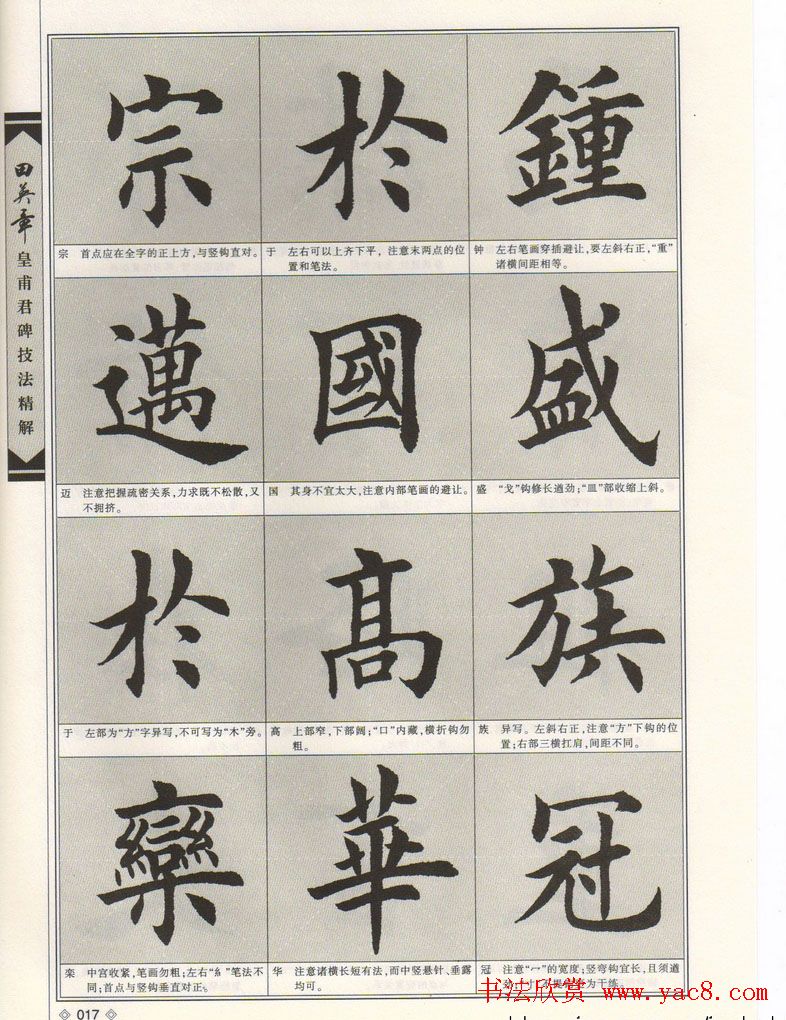 宗 於 鍾
宗 首点应在全字的正上方,与竖钩直对。
于 左右可以上齐下平,注意末两点的位
置和笔法。
钟 左右笔画穿插避让,要左斜右正,“重”
诸横间距相等。
邁 國 盛
迈 注意把握疏密关系,力求既不松散,又
不拥挤。
国 其身不宜太大,注意内部笔画的避让。
盛 “戈”钩修长遒劲;“皿”部收缩上斜。
於 高 族
于 左部为“方”字异写,不可写为“木”旁。
高 上部窄,下部阔;“口”内藏,横折钩勿
粗。
族 异写。左斜右正,注意“方”下钩的位
置;右部三横扛肩,间距不同。
欒 華 冠
栾 中宫收紧,笔画勿粗;左右“糹”笔法不
同;首点与竖钩垂直对正。
华 注意诸横长短有法,而中竖悬针、垂露
均可。
冠 注意“冖”的宽度;竖弯钩宜长,且须遒
田英章
皇甫君碑技法精解
017
书法欣赏 www.yac8.com